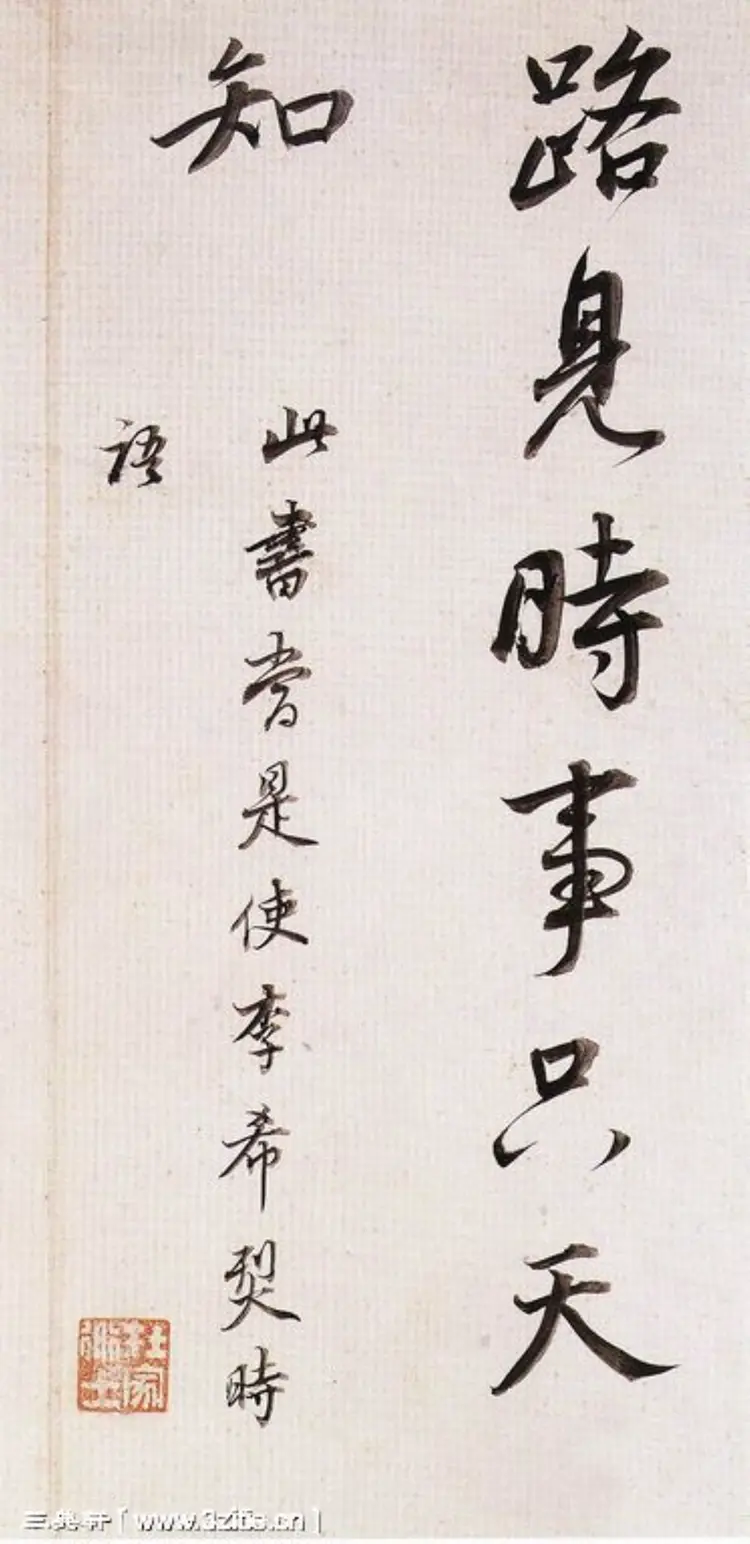 路見時事只天
知
此書當是使李希烈時
語
[www.3zitie.cn]